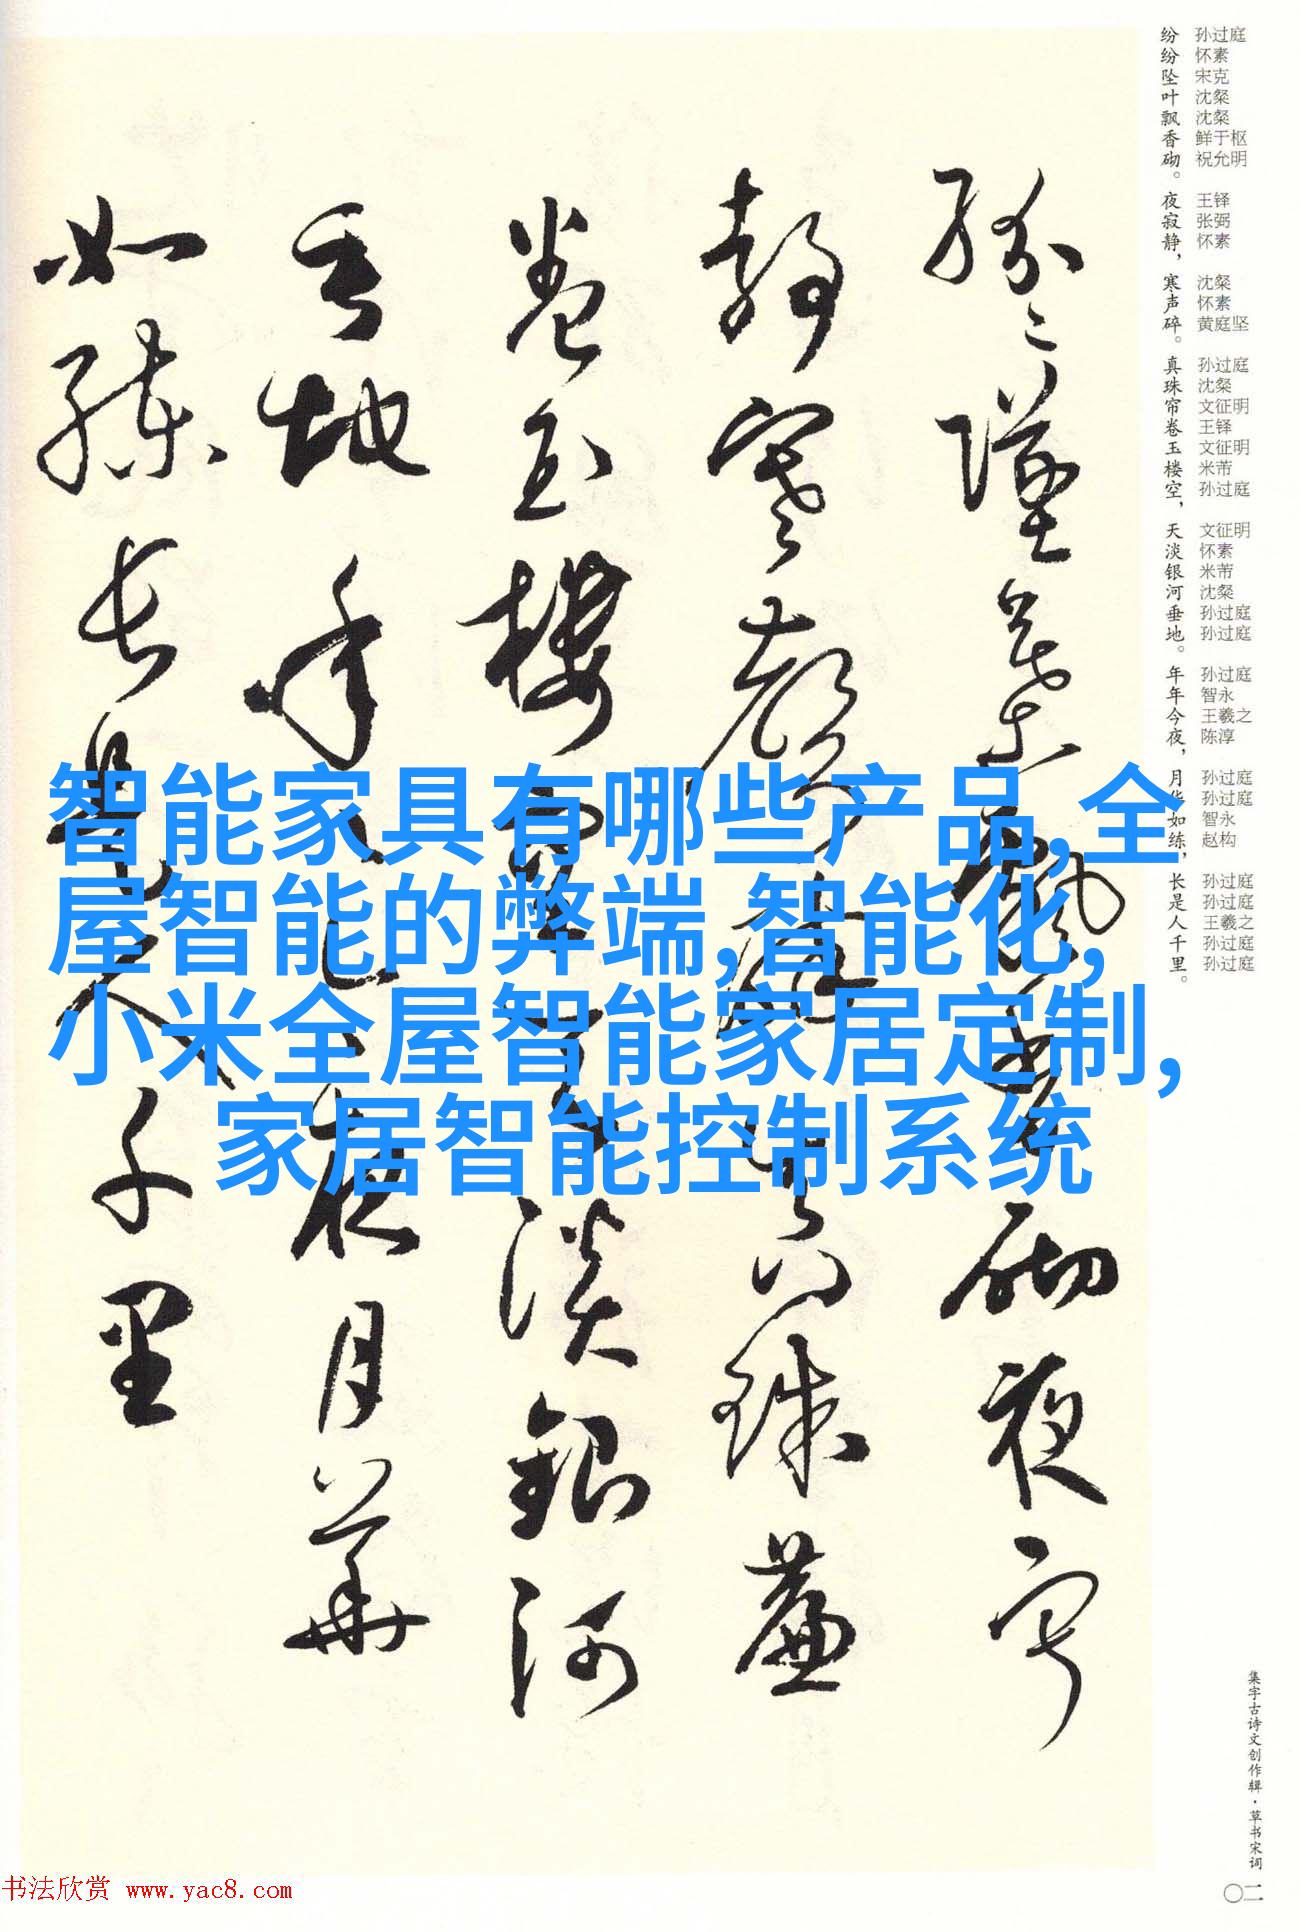 孙过庭
怀素
宋克
沈粲
沈粲
鲜于枢
祝允明
王铎
张弼
怀素
沈粲
怀素
黄庭坚
孙过庭
沈粲
文征明
王铎
文征明
米芾
孙过庭
文征明
怀素
米芾
沈粲
孙过庭
孙过庭
孙过庭
智永
王羲之
陈淳
孙过庭
孙过庭
智永
赵构
孙过庭
孙过庭
王羲之
孙过庭
孙过庭
纷纷坠叶飘香砌。夜寂静，寒声碎。真珠帘卷玉楼空，天淡银河垂地。年年今夜，月华如练，长是人千里。
紛々墜葉飄香砌夜寂
静寒聲碎真珠簾
卷玉樓空天淡銀河
垂地年々今夜月華
如練長是人千里
智能家具有哪些产品,全
屋智能的弊端,智能化,
小米全屋智能家居定制,
家居智能控制系统
集字古诗文创作辑·草书宋词
〇二
书法欣赏 www.yac8.com